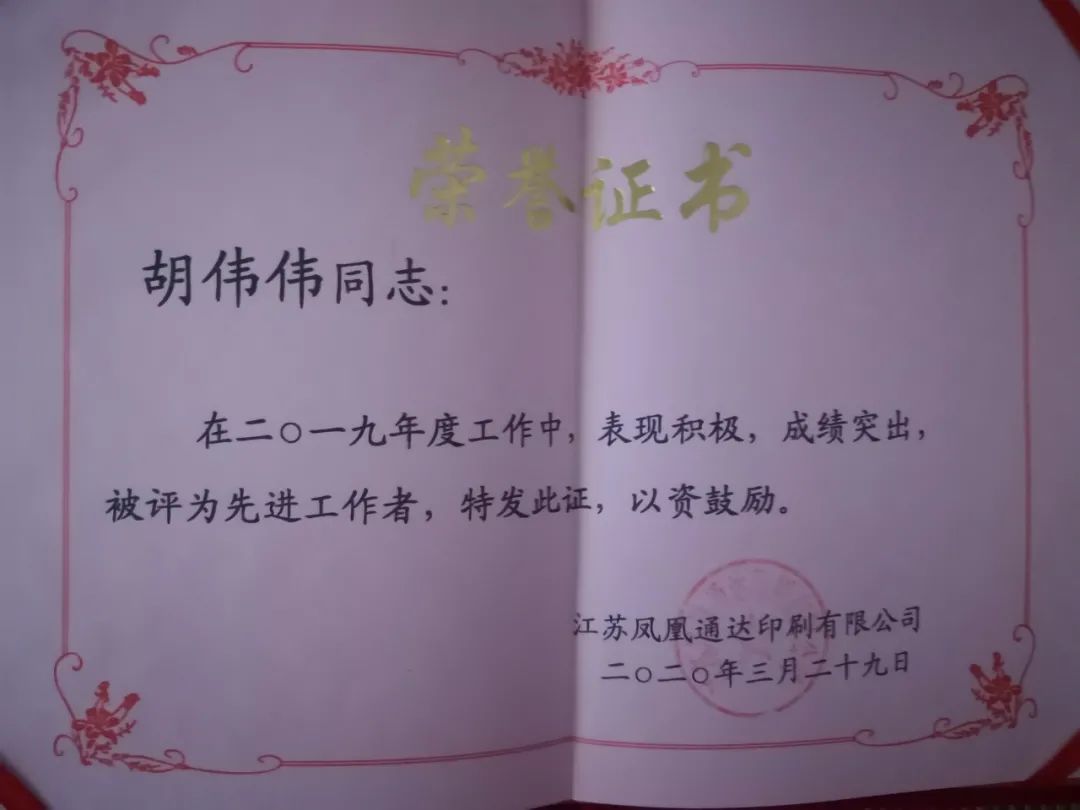 荣誉证书
胡伟伟同志：
在二〇一九年度工作中，表现积极，成绩突出，
被评为先进工作者，特发此证，以资鼓励。
江苏凤凰通达印刷有限公司
二〇二〇年三月二十九日